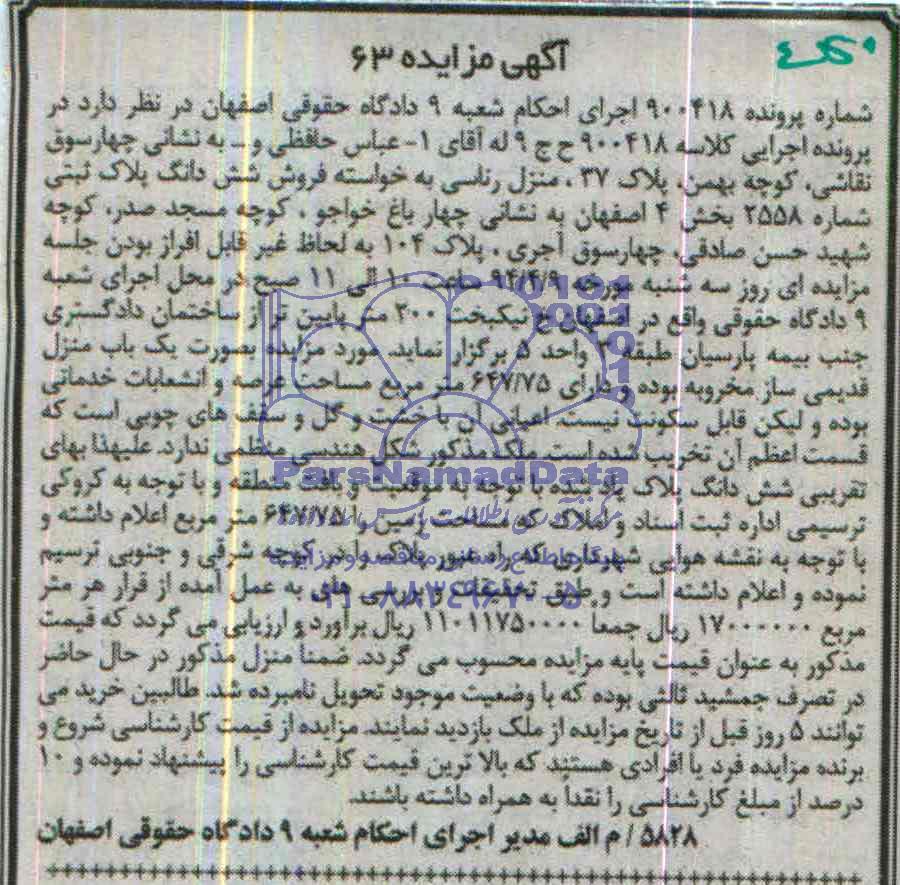 آگهی مزایده ۶۳
شماره پرونده ۹۰۰۴۱۸ اجرای احکام شعبه ۹ دادگاه حقوقی اصفهان در نظر دارد در
پرونده اجرایی کلاسه ۹۰۰۴۱۸ ح ج ۹ له آقای ۱- عباس حافظی و ... به نشانی چهارسوق
نقاشی، کوچه بهمن، پلاک ۳۷ ، منزل رناسی به خواسته فروش شش دانگ پلاک ثبتی
شماره ۲۵۵۸ بخش ۴ اصفهان به نشانی چهار باغ خواجو ، کوچه مسجد صدر، کوچه
شهید حسن صادقی، چهارسوق آجری ، پلاک ۱۰۴ به لحاظ غیر قابل افراز بودن جلسه
مزایده ای روز سه شنبه مورخه ۹۴/۴/۹ ساعت ۱۰ الی ۱۱ صبح در محل اجرای شعبه
۹ دادگاه حقوقی واقع در اصفهان خ نیکبخت ۲۰۰ متر پایین تر از ساختمان دادگستری
جنب بیمه پارسیان طبقه ۳ واحد ۵ برگزار نماید. مورد مزایده بصورت یک باب منزل
قدیمی ساز مخروبه بوده و دارای ۶۴۷/۷۵ متر مربع مساحت عرصه و انشعابات خدماتی
بوده و لیکن قابل سکونت نیست. اعیانی آن با خشت و گل و سقف های چوبی است که
قسمت اعظم آن تخریب شده است. ملک مذکور شکل هندسی منظمی ندارد. علیهذا بهای
تقریبی شش دانگ پلاک یاد شده با توجه به موقعیت و بافت منطقه و با توجه به کروکی
ترسیمی اداره ثبت اسناد و املاک که مساحت زمین را ۶۴۷/۷۵ متر مربع اعلام داشته و
با توجه به نقشه هوایی شهرداری که راه عبور پلاک را در کوچه شرقی و جنوبی ترسیم
نموده و اعلام داشته است و طبق تحقیقات و بررسی های به عمل آمده از قرار هر متر
مربع ۱۷۰۰۰۰۰۰ ریال جمعاً ۱۱۰۱۱۷۵۰۰۰۰ ریال برآورد و ارزیابی می گردد که قیمت
مذکور به عنوان قیمت پایه مزایده محسوب می گردد. ضمناً منزل مذکور در حال حاضر
در تصرف جمشید ثالثی بوده که با وضعیت موجود تحویل نامبرده شد. طالبین خرید می
توانند ۵ روز قبل از تاریخ مزایده از ملک بازدید نمایند. مزایده از قیمت کارشناسی شروع و
برنده مزایده فرد یا افرادی هستند که بالا ترین قیمت کارشناسی را پیشنهاد نموده و ۱۰
درصد از مبلغ کارشناسی را نقداً به همراه داشته باشند.
۵۸۲۸ / م الف مدیر اجرای احکام شعبه ۹ دادگاه حقوقی اصفهان
ParsNamadData